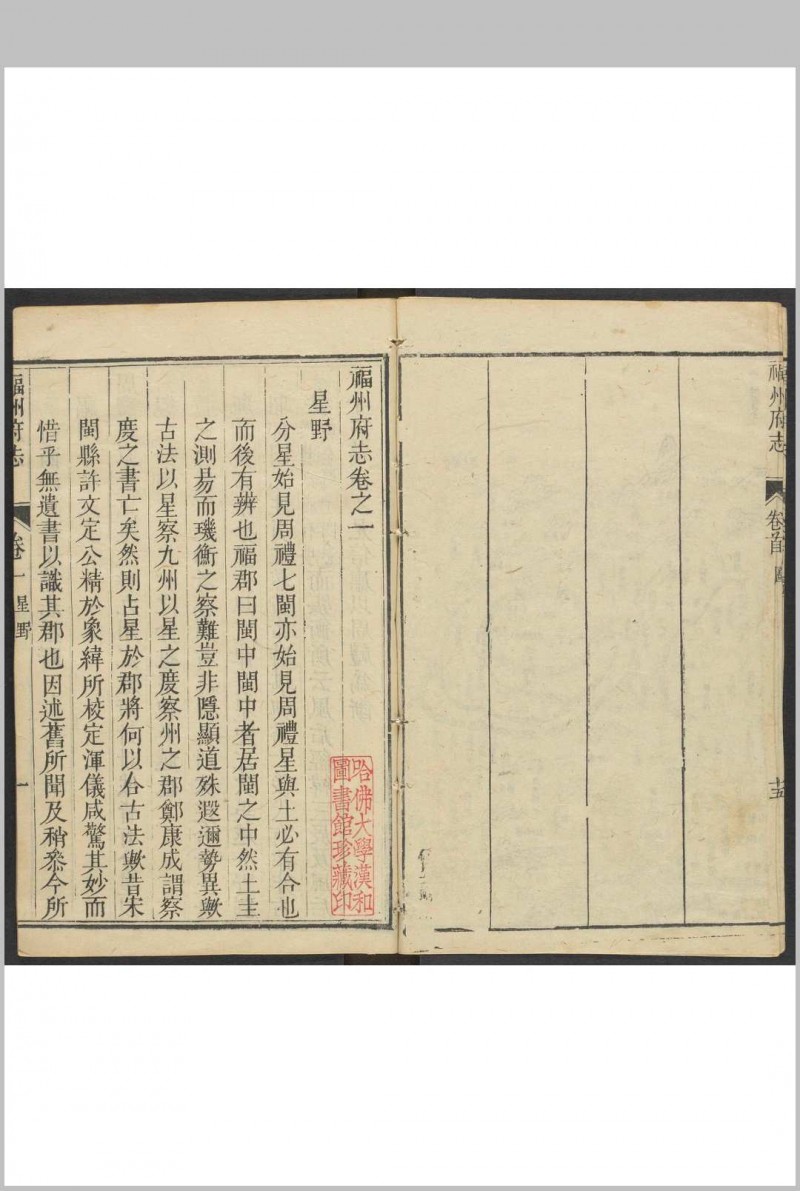 福州府志
卷首
十五
福州府志卷之一
星野
分星始見周禮七閩亦始見周禮星與土必有合也
而後有辨也福郡曰閩中閩中者居閩之中然土圭
之測昜而璣衡之察難豈非隱顯道殊遐邇勢異歟
古法以星察九州以星之度察州之郡鄭康成謂察
度之書亡矣然則占星於郡將何以合古法歟昔宋
閩縣許文定公精於象緯所棱定渾儀咸驚其妙而
惜乎無遺書以識其郡也因述舊所聞及稍叅今所
福州府志
卷一
星野
一
哈佛大學漢和
圖書館珍藏印